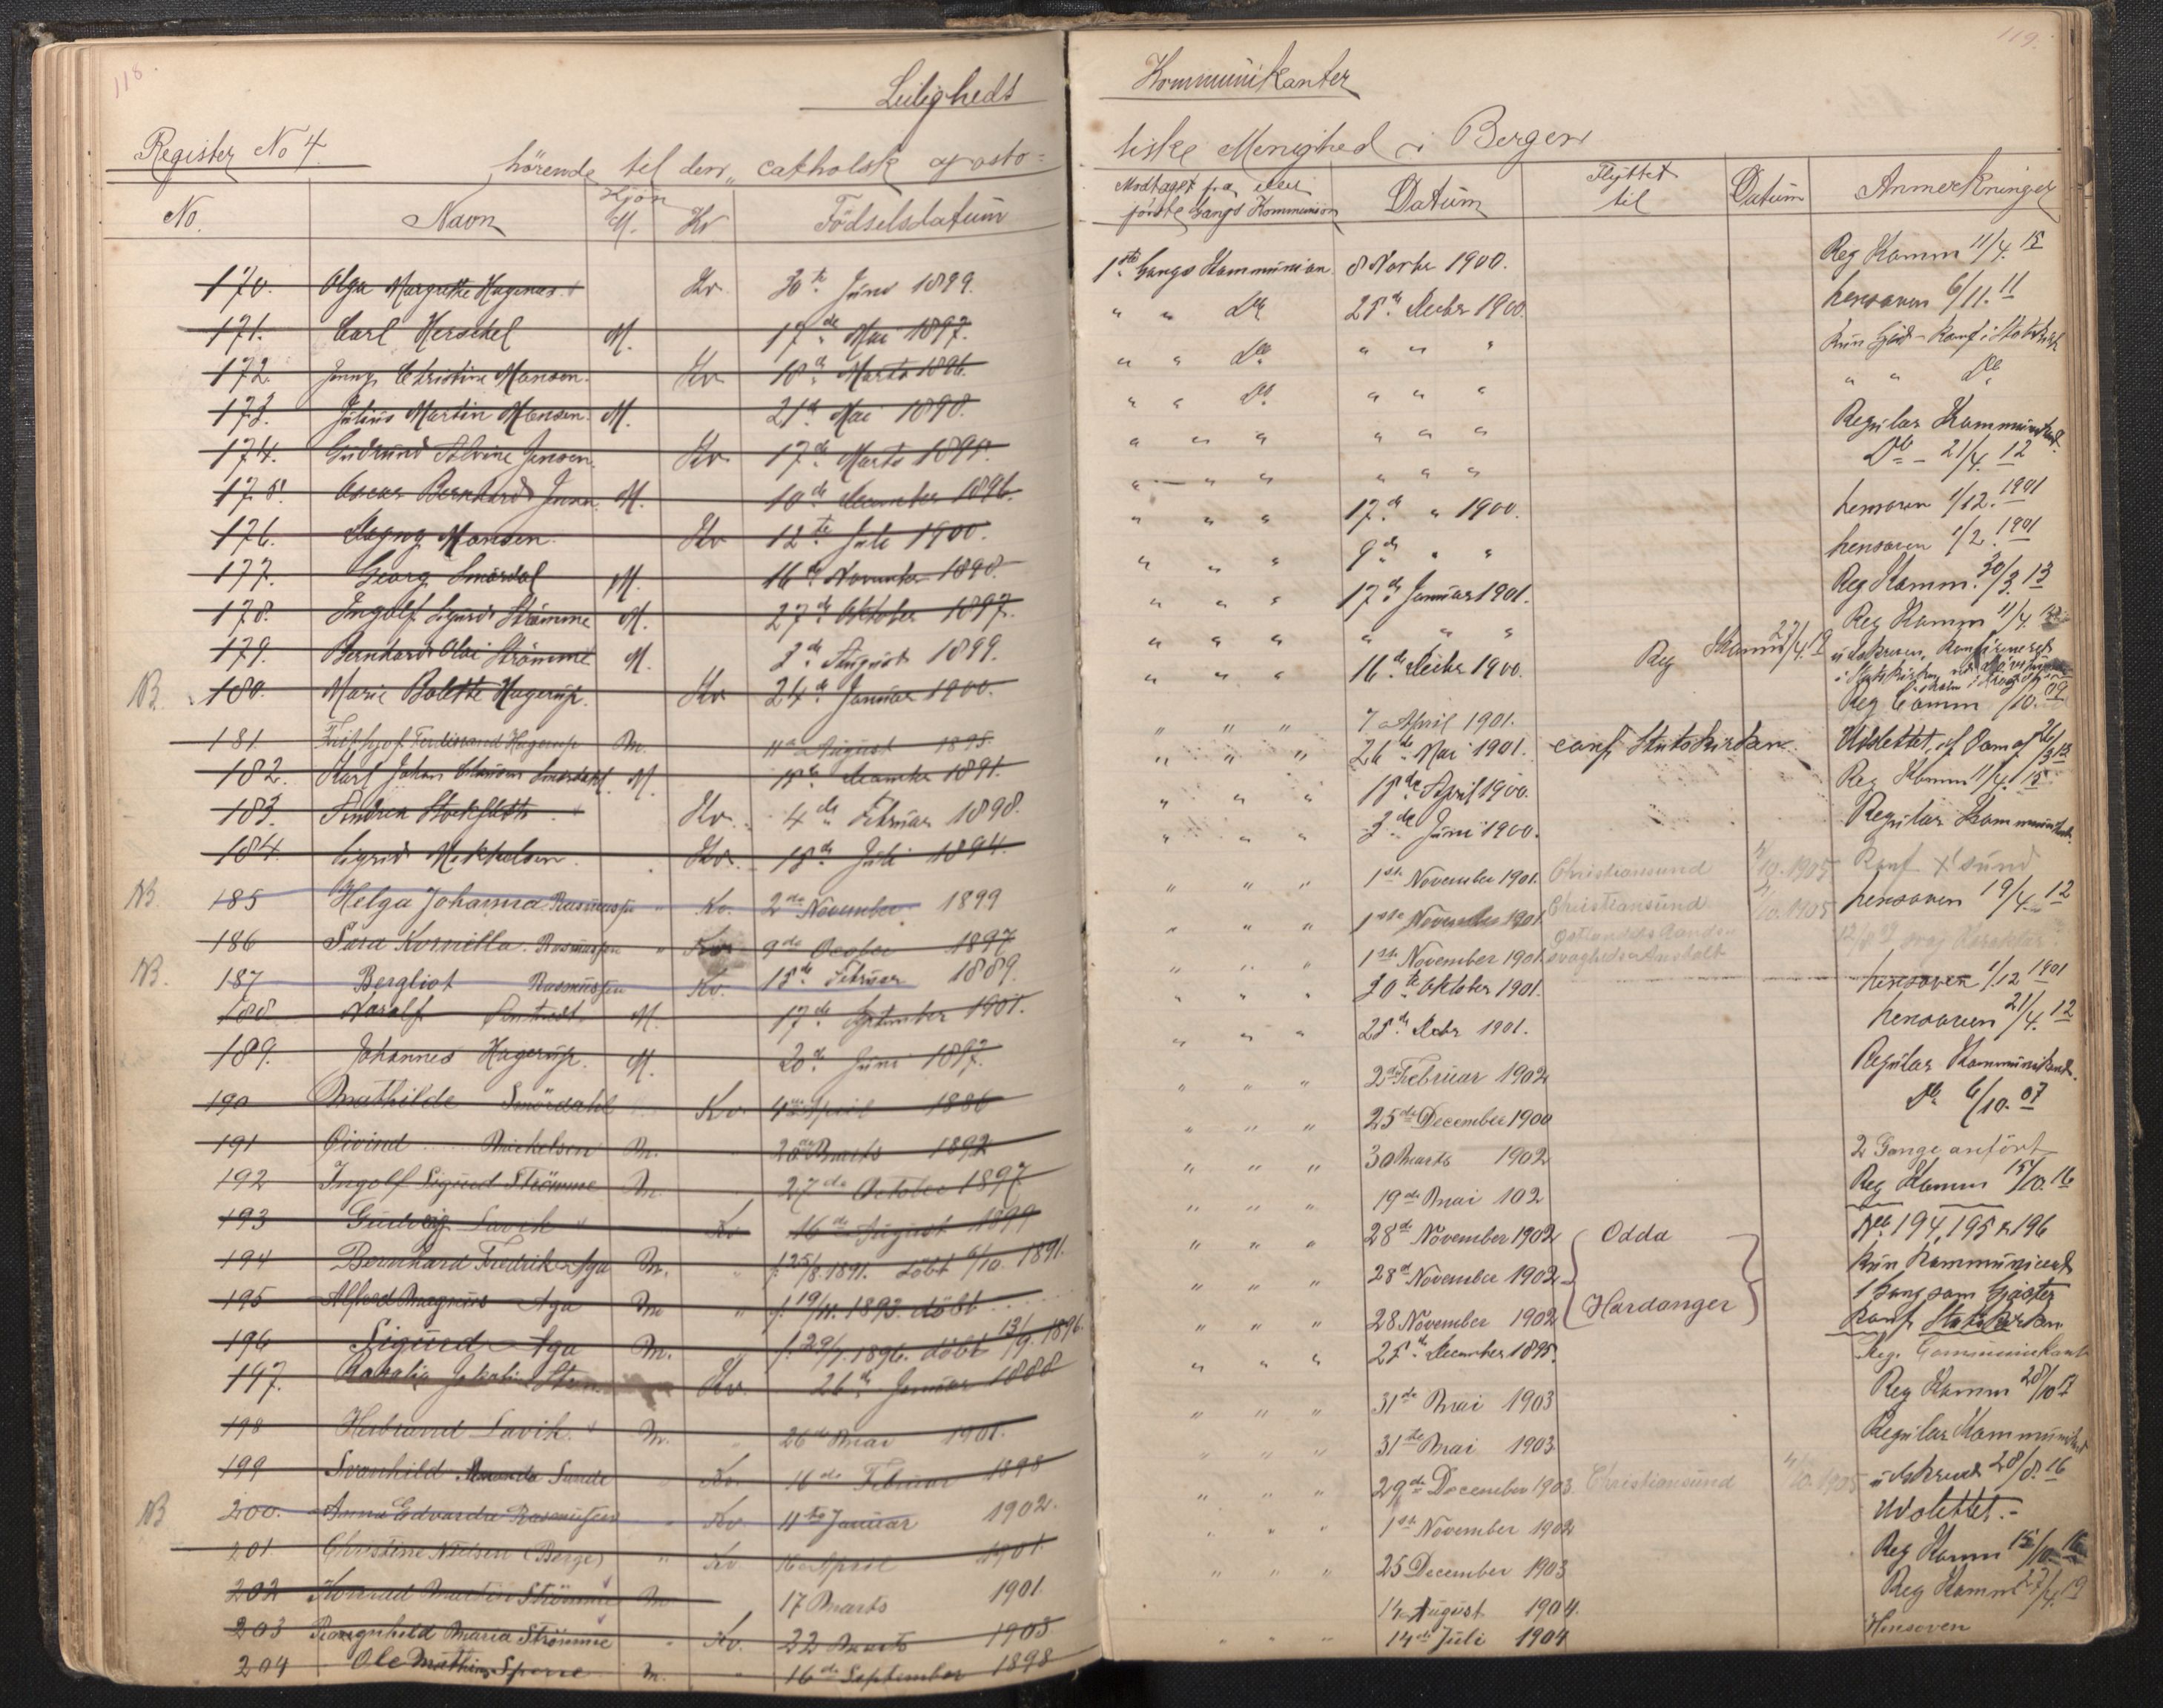 118.
Leiligheds
Register No 4.
hörende til den „ catholsk aposto=
No.
Navn
Kjön
M.
Kv
Födselsdatum
170. Olga Margrethe Hagenas Kv 30te Juni 1899.
171. Carl Herschel M. 17de Mai 1897.
172. Jenny Christine Monsen. Kv 18de Marts 1896.
173. Julius Martin Monsen. M. 21de Mai 1898.
174. Gudrund Alvine Jensen. Kv 17de Marts 1895.
175. Oscar Bernhard Jensen. M. 10de December 1896.
176. Dagny Monsen. Kv 12te Juli 1900.
177. Georg Smördal M. 16de November 1898.
178. Ingolf Sigurd Strömme M. 27de Oktober 1897.
179. Bernhard Olai Strömme M. 3de August 1899.
NB. 180. Marie Bolette Hagerup. Kv 24de Januar 1900.
181 Frithjof Ferdinand Hagerup M. 11te August 1895
182. Karl Johan Clausen Smördahl. M. 15de December 1891.
183. Andrea Stockfleth Kv. 4de Februar 1898.
184. Sigrid Mikkelsen. Kv. 15de Juli 1894.
NB. 185 Helga Johanna Rasmussen " Kv. 2den November 1899
186 Sara Kornilla. Rasmussen " Kv. 9de October 1897
NB. 187 Bergliot Rasmussen Kv. 15de Februar 1889.
188. Norolf M. 17de September 1901.
189. Johannes Hagerup. M. 20de Juni 1897.
190 Mathilde Smördahl Kv. 4de April 1886
191 Öivind Mickelsen M. 28de Marts 1892
192 Ingolf Sigurd Strömme M. 27de October 1897
193 Gudveig Lavik Kv 16de August 1899
194 Bernhard Fredrik Aga M. " f. 25/8. 1891. döbt 6/10. 1891.
195 Alfred Magnus Aga M " f. 19/11. 1893. döbt
196 Sigurd Aga M. " f. 29/7. 1896. döbt 13/9. 1896.
197. Jakobi Sten Kv. 26de Januar 1888
198 Lavik. M. " 26de Mai 1901.
199 Svanhild Amanda Sunde " Kv. 16de Februar 1898
NB 200. Anna Edvarda Rasmussen " Kv. 11te Januar 1902.
201 Christine Nielsen (Berge) " Kv. 16de April 1901
202 Konrad Martin Strömme M 17 Marts 1901.
203 Rangnhild Maria Strömme " Kv. 22 Marts 1903
204 Ole Mathias Sperre M. " 16de September 1898
119.
Kommunikanter
liske Menighed i Bergen
Modtaget fra eller
förste Gangs Kommunion
Datum
Flyttet
til
Datum
Anmerkninger
1ste Gangs Kommunion. 8 Novbr 1900. Reg Komm 11/4. 15
" " Do 25de Decbr 1900. hensoven 6/11. 11
" " Do " " " kun
" " Do " " " " " Do
" " " " " " Regulær Kommunikant.
" " " " " " Do - 21/4. 12
" " " 17de " 1900. hensoven 1/12. 1901
" " " 9de " " hensoven 1/2. 1901
" " " 17de Januar 1901. Reg Komm. 30/3. 13
" " " " " " Reg Komm 11/4.
" " " 16de Decbr 1900. Reg Komm 27/4. 19 udskreven, Konfirmeret
i Statskirken
" " " 7 April 1901. Reg Comm /10. 09
" " " 26de Mai 1901. conf. Statskirken. Udslettet, 26/3 13
" " " 15de April 1900. Reg Komm 11/4. 15.
" " " 3de Juni 1900. Regulær Kommunikant.
" " " 1ste November 1901. Christiansund 4/10. 1905 Konf. X sund
" " " 1ste November 1901 Christiansund. 4/10. 1905 hensoven 19/4. 12
" " " 1ste November 1901.
" " " 30te Oktober 1901. hensoven 1/12 1901
" " " 25de Decbr 1901. hensoven 21/4. 12
" " " 2de Februar 1902 Regulær Kommunikant.
" " " 25de December 1900 Do 6/10. 07
" " " 30 Marts 1902 2 Gange anfört
" " " 19de Mai 102 Reg Komm 15/10. 16
" " " 28de November 1902 Odda No 194, 195 & 196
" " " 28de November 1902 kun Kommunicert
1 Gang som Gjæster
" " " 28 November 1902 Hardanger Konf Statskirken
" " " 25de December 1895. Reg. Communikant
" " " 31de Mai 1903 Reg Komm 28/10 17
" " " 31te Mai 1903 Regulær Kommunikant
" " " 29de December 1903 Christiansund 4/10. 1905 udskrevet 28/8. 16
" " " 1ste November 1902 Udslettet. -
" " " 25 December 1903 Reg Komm 15/10 16
14 August 1904. Reg Komm 27/4. 19
" " " 14de Juli 1904 Hensoven